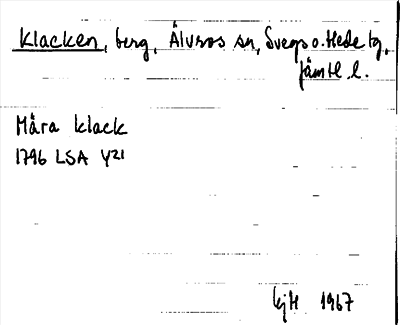 Klacken, berg, Älvros sn, Svegs o. Hede tg,
Jämtl. l.
Måra klack
1796 LSA Y21
kjH 1967